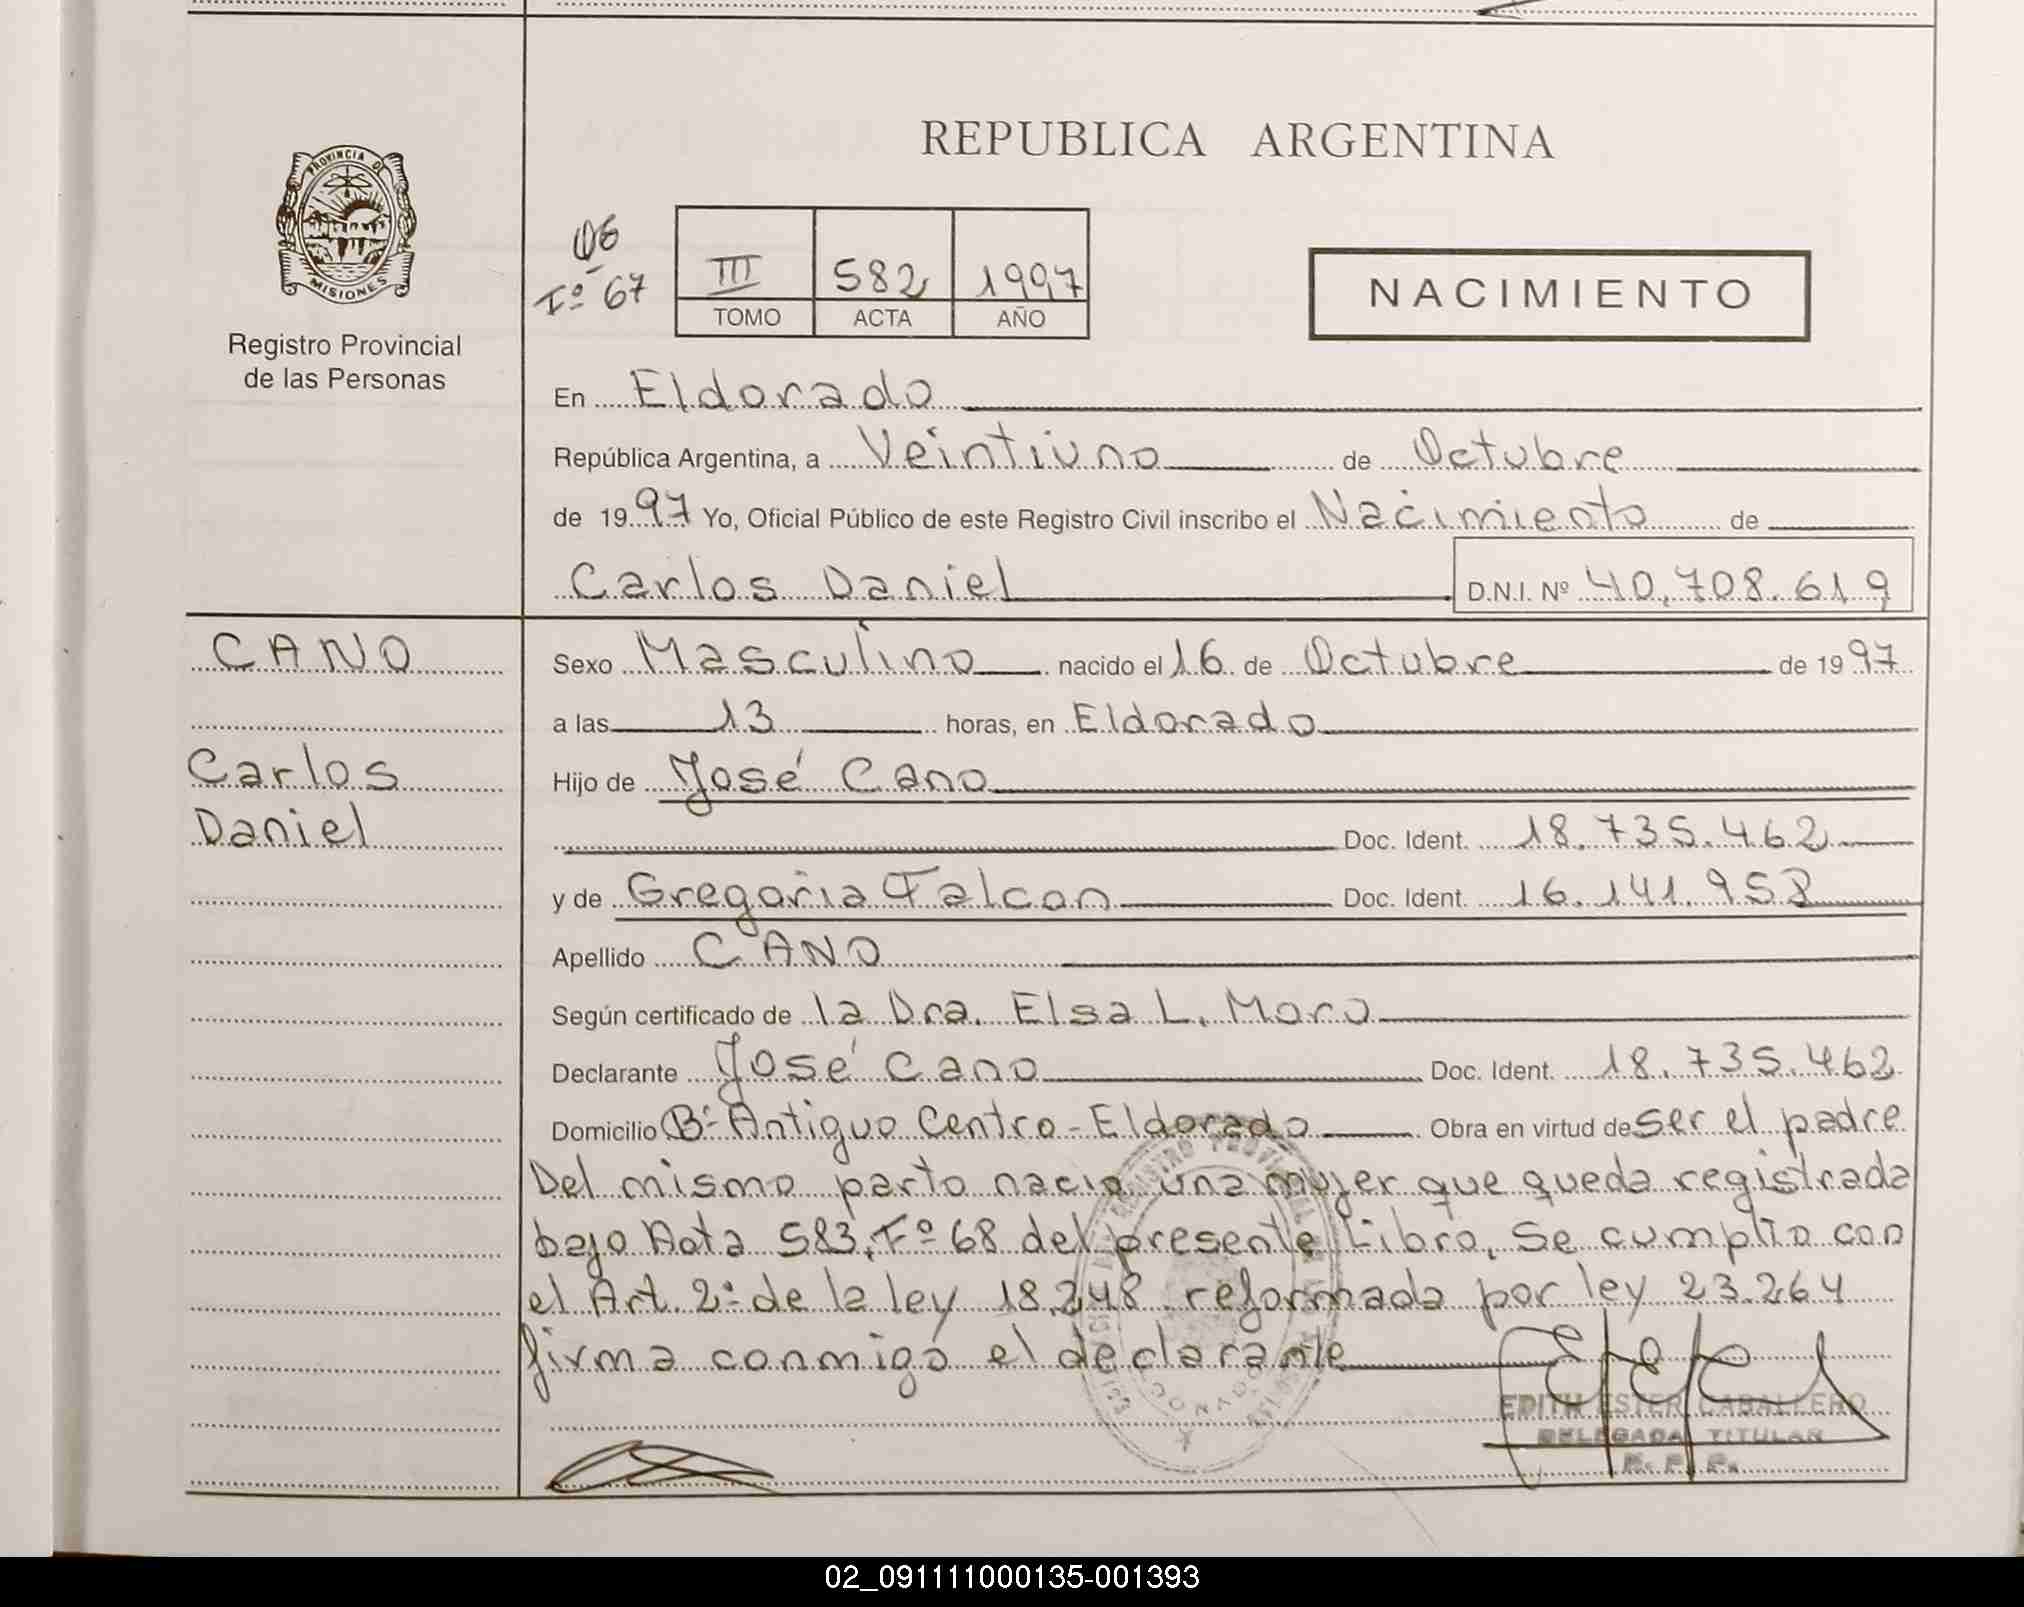 PROVINCIA DE
MISIONES
Registro Provincial
de las Personas
REPUBLICA ARGENTINA
06
Fº 67
III 582 1997
TOMO ACTA AÑO
NACIMIENTO
En Eldorado
República Argentina, a Veintiuno de Octubre
de 1997 Yo, Oficial Público de este Registro Civil inscribo el Nacimiento de
Carlos Daniel D.N.I. Nº 40.708.619
CANO
Carlos
Daniel
Sexo Masculino nacido el 16 de Octubre de 1997
a las 13 horas, en Eldorado
Hijo de José Cano
Doc. Ident. 18.735.462
y de Gregoria Falcon Doc. Ident. 16.141.958
Apellido CANO
Según certificado de la Dra. Elsa L. Moro
Declarante José Cano Doc. Ident. 18.735.462
Domicilio Bº Antiguo Centro - Eldorado Obra en virtud de ser el padre
Del mismo parto nacio una mujer que queda registrada
bajo Acta 583, Fº 68 del presente Libro, Se cumplio con
el Art. 2º de la ley 18.248 reformada por ley 23.264
firma conmigo el declarante
EDITH ESTER CABALLERO
DELEGADA TITULAR
02_091111000135-001393